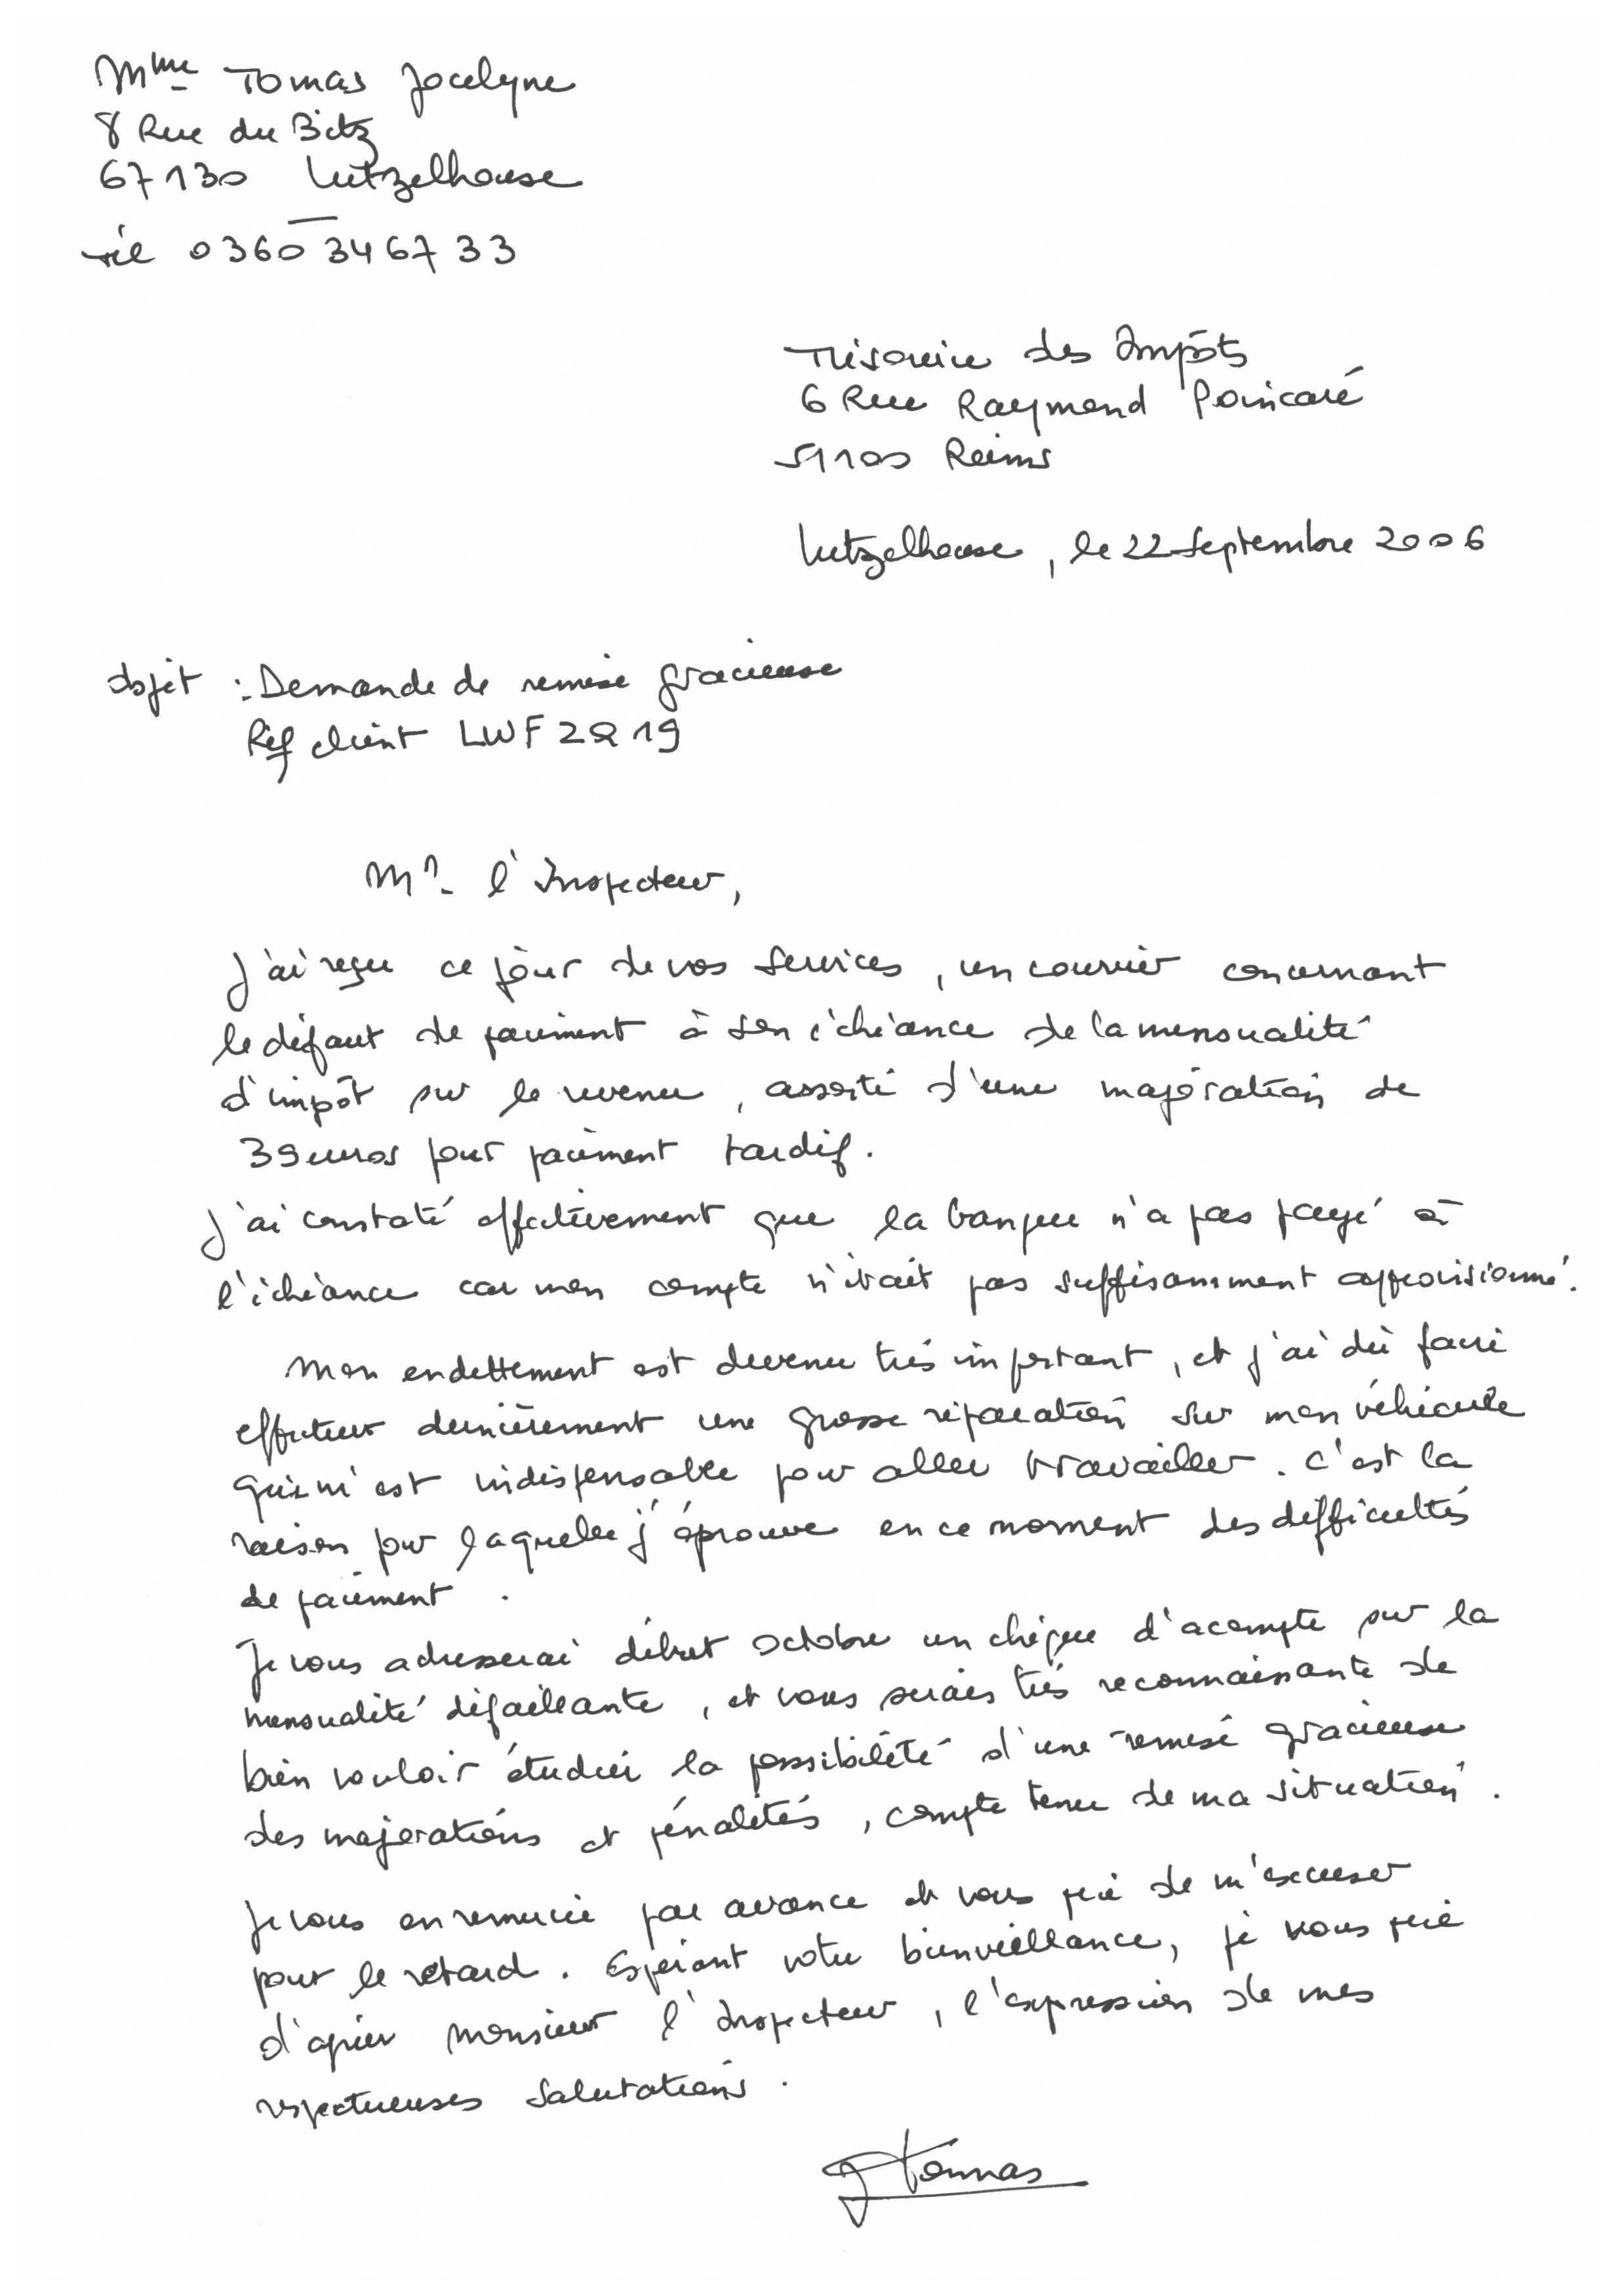 Mme Tomas Jocelyne
8 Rue du Bitz
67130 Lutzelhouse
tél 0360 34 67 33
Trésorerie des Impôts
6 Rue Raymond Poincaré
51100 Reims
Lutzelhouse, le 22 Septembre 2006
Objet : Demande de remise gracieuse
Réf client LWF2Q19
Mr l'Inspecteur,
J'ai reçu ce jour de vos services, un courrier concernant
le défaut de paiement à son échéance de la mensualité
d'impôt sur le revenu, assorti d'une majoration de
39 euros pour paiement tardif.
J'ai constaté effectivement que la banque n'a pas payé à
l'échéance car mon compte n'était pas suffisamment approvisionné.
Mon endettement est devenu très important, et j'ai dû faire
effectuer dernièrement une grosse réparation sur mon véhicule
qui m'est indispensable pour aller travailler. C'est la
raison pour laquelle j'éprouve en ce moment des difficultés
de paiement.
Je vous adresserai début octobre un chèque d'acompte sur la
mensualité défaillante, et vous serais très reconnaissante de
bien vouloir étudier la possibilité d'une remise gracieuse
des majorations et pénalités, compte tenu de ma situation.
Je vous en remercie par avance et vous prie de m'excuser
pour le retard. Espérant votre bienveillance, je vous prie
d'agréer Monsieur l'Inspecteur, l'expression de mes
respectueuses salutations.
JTomas